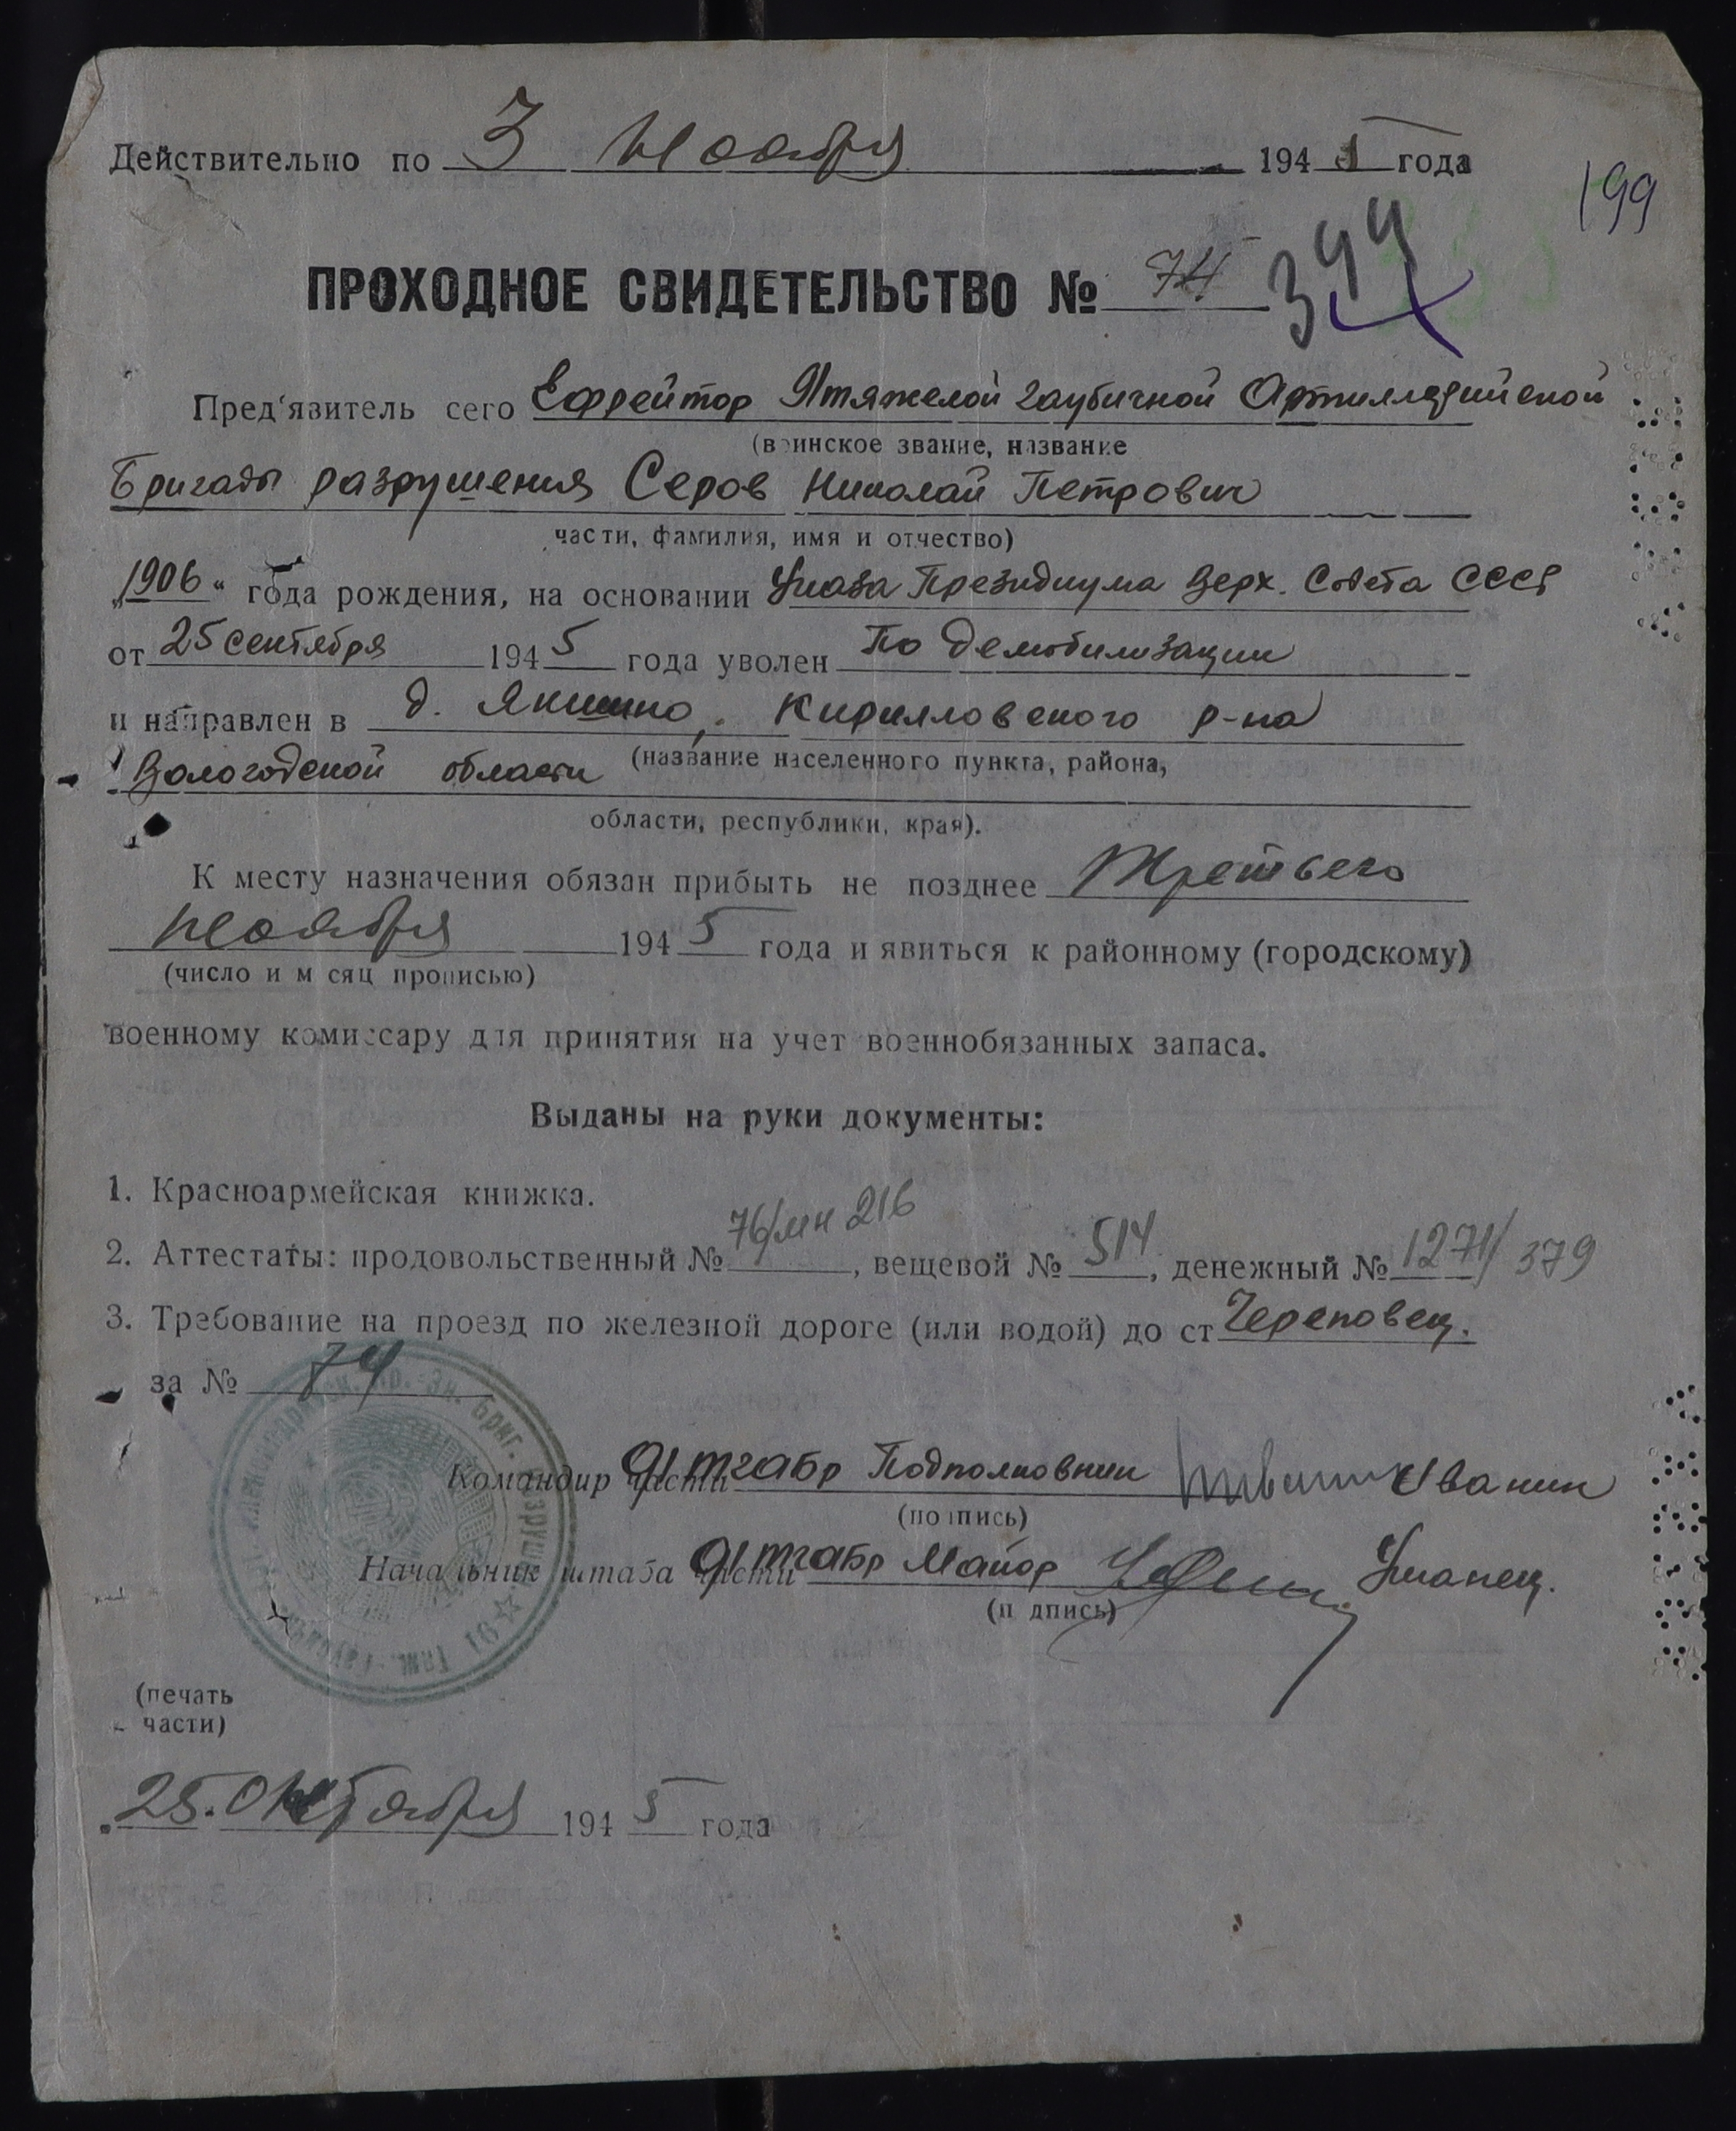 Действительно по 3 Ноября 1945 года
199
ПРОХОДНОЕ СВИДЕТЕЛЬСТВО № 74
344
Пред'явитель сего Ефрейтор 91 тяжелой гаубичной Артиллерийской
(воинское звание, название
Бригады разрушения Серов Николай Петрович
части, фамилия, имя и отчество)
„1906“ года рождения, на основании Указа Президиума Верх. Совета СССР
от 25 сентября 1945 года уволен По демобилизации
и направлен в д. Якшино, Кирилловского р-на
Вологодской области (название населенного пункта, района,
области, республики, края).
К месту назначения обязан прибыть не позднее Третьего
ноября 1945 года и явиться к районному (городскому)
(число и м сяц прописью)
военному комиссару для принятия на учет военнобязанных запаса.
Выданы на руки документы:
1. Красноармейская книжка.
2. Аттестаты: продовольственный № 76/мн 216, вещевой № 514, денежный № 1271/379
3. Требование на проезд по железной дороге (или водой) до ст Череповец.
за № 74
Командир части 91 тгабр Подполковник Иванин
(подпись)
Начальник штаба части 91 тгабр Майор Уманец.
(п дпись)
(печать
части)
25. Октября 1945 года